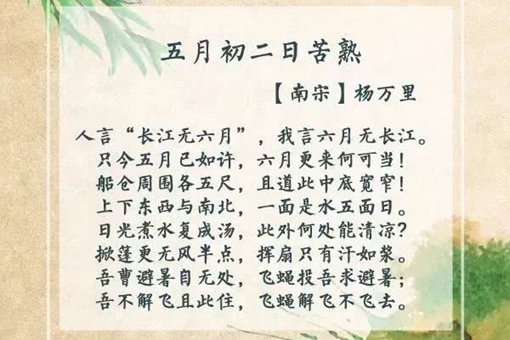 五月初二日苦熟
【南宋】杨万里
人言“长江无六月”，我言六月无长江。
只今五月已如许，六月更来何可当！
船仓周围各五尺，且道此中底宽窄！
上下东西与南北，一面是水五面日。
日光煮水复成汤，此外何处能清凉?
掀篷更无风半点，挥扇只有汗如浆。
吾曹避暑自无处，飞蝇投吾求避暑；
吾不解飞且此住，飞蝇解飞不飞去。